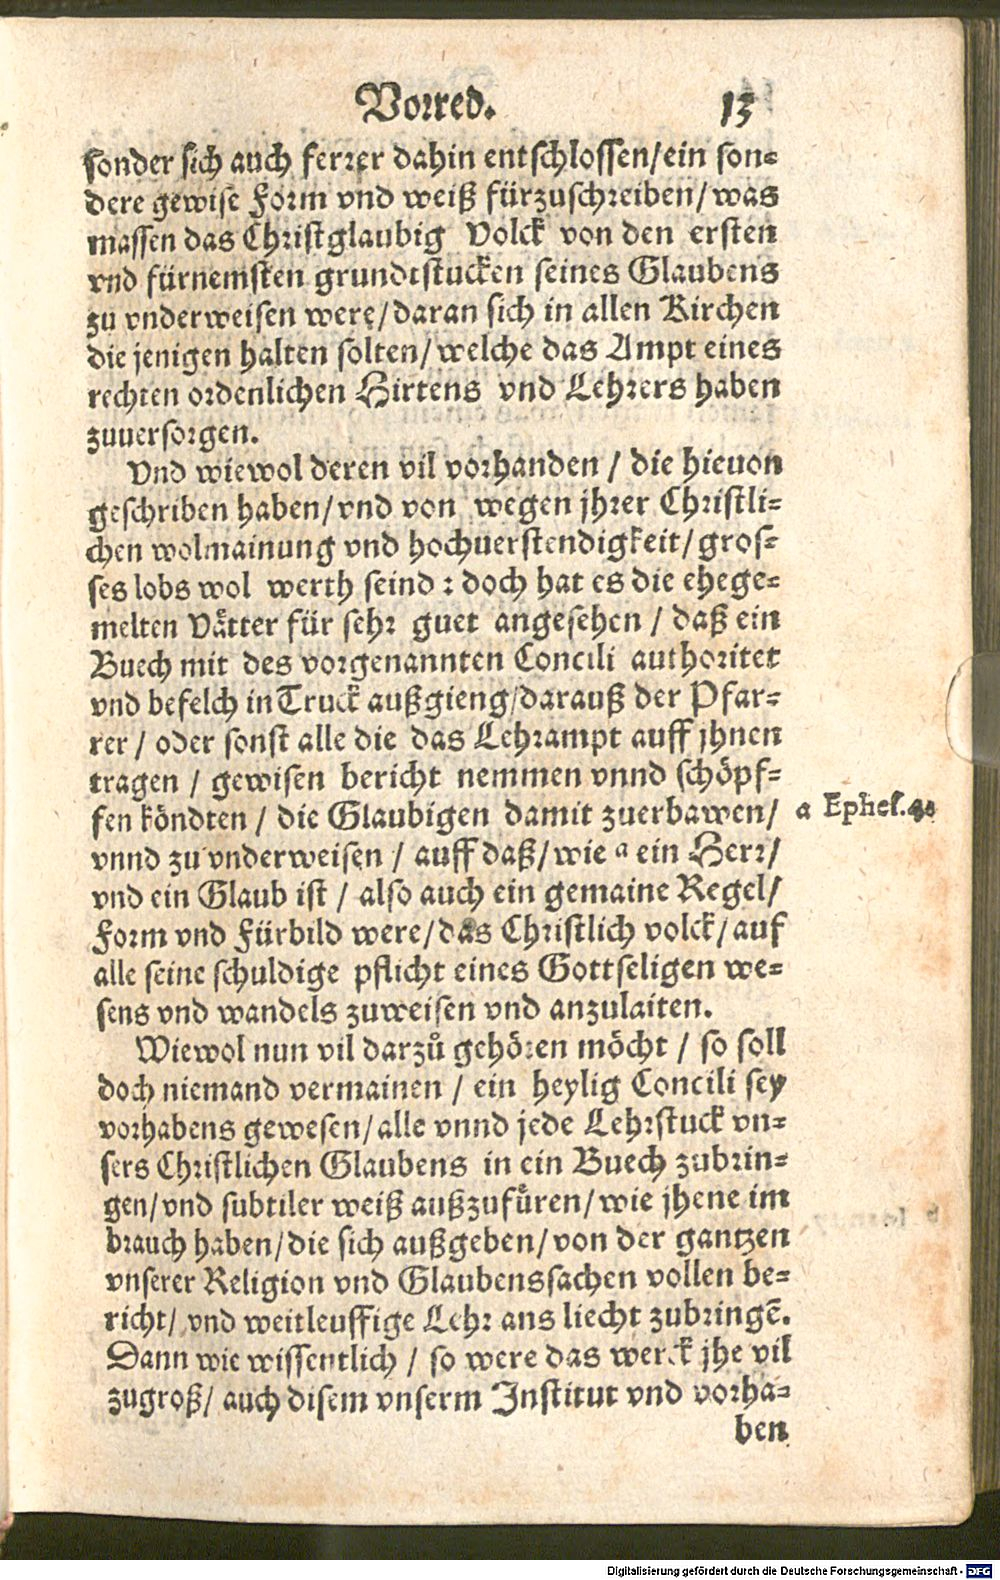 Vorred. 13
sonder sich auch ferrer dahin entschlossen/ein son-
dere gewise Form vnd weiß fürzuschreiben/was
massen das Christglaubig Volck von den ersten
vnd fürnemsten grundtstucken seines Glaubens
zu vnderweisen were/daran sich in allen Kirchen
die jenigen halten solten/welche das Ampt eines
rechten ordenlichen Hirtens vnd Lehrers haben
zuuersorgen.
Vnd wiewol deren vil vorhanden / die hieuon
geschriben haben/vnd von wegen jhrer Christli-
chen wolmainung vnd hochuerstendigkeit/gros-
ses lobs wol werth seind : doch hat es die ehege-
melten Vätter für sehr guet angesehen / daß ein
Buech mit des vorgenannten Concili authoritet
vnd befelch in Truck außgieng/darauß der Pfar-
rer / oder sonst alle die das Lehrampt auff jhnen
tragen / gewisen bericht nemmen vnnd schöpf-
fen köndten / die Glaubigen damit zuerbawen/
a Ephes.4.
vnnd zu vnderweisen / auff daß/wie a ein Herr/
vnd ein Glaub ist / also auch ein gemaine Regel/
Form vnd Fürbild were/das Christlich volck/auf
alle seine schuldige pflicht eines Gottseligen we-
sens vnd wandels zuweisen vnd anzulaiten.
Wiewol nun vil darzů gehören möcht / so soll
doch niemand vermainen / ein heylig Concili sey
vorhabens gewesen/alle vnnd jede Lehrstuck vn-
sers Christlichen Glaubens in ein Buech zubrin-
gen/vnd subtiler weiß außzufüren/wie jhene im
brauch haben/die sich außgeben/von der gantzen
vnserer Religion vnd Glaubenssachen vollen be-
richt/ vnd weitleuffige Lehr ans liecht zubringẽ.
Dann wie wissentlich / so were das werck jhe vil
zugroß/ auch disem vnserm Institut vnd vorha-
ben
Digitalisierung gefördert durch die Deutsche Forschungsgemeinschaft - DFG